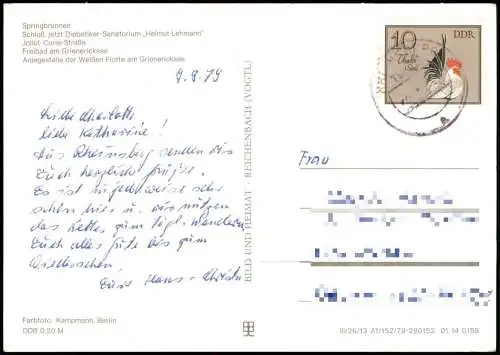 Springbrunnen
Schloß, jetzt Diabetiker-Sanatorium „Helmut Lehmann"
Joliot-Curie-Straße
Freibad am Grienericksee
Anlegestelle der Weißen Flotte am Grienericksee
10 DDR
9.9.79
Liebe Charlotte
liebe Katharina!
Aus Rheinsberg senden wir
Euch herzliche Grüße.
Es ist in jeder weise sehr
schön hier u. wir nutzen
das Wetter zum tägl. Wandern
Euch alles gute bis zum
Wiedersehen,
Eure Hans-
Frau
BILD UND HEIMAT · REICHENBACH (VOGTL)
Farbfoto: Kampmann, Berlin
DDR 0,20 M
III/26/13 A1/152/79-280152 01 14 0159